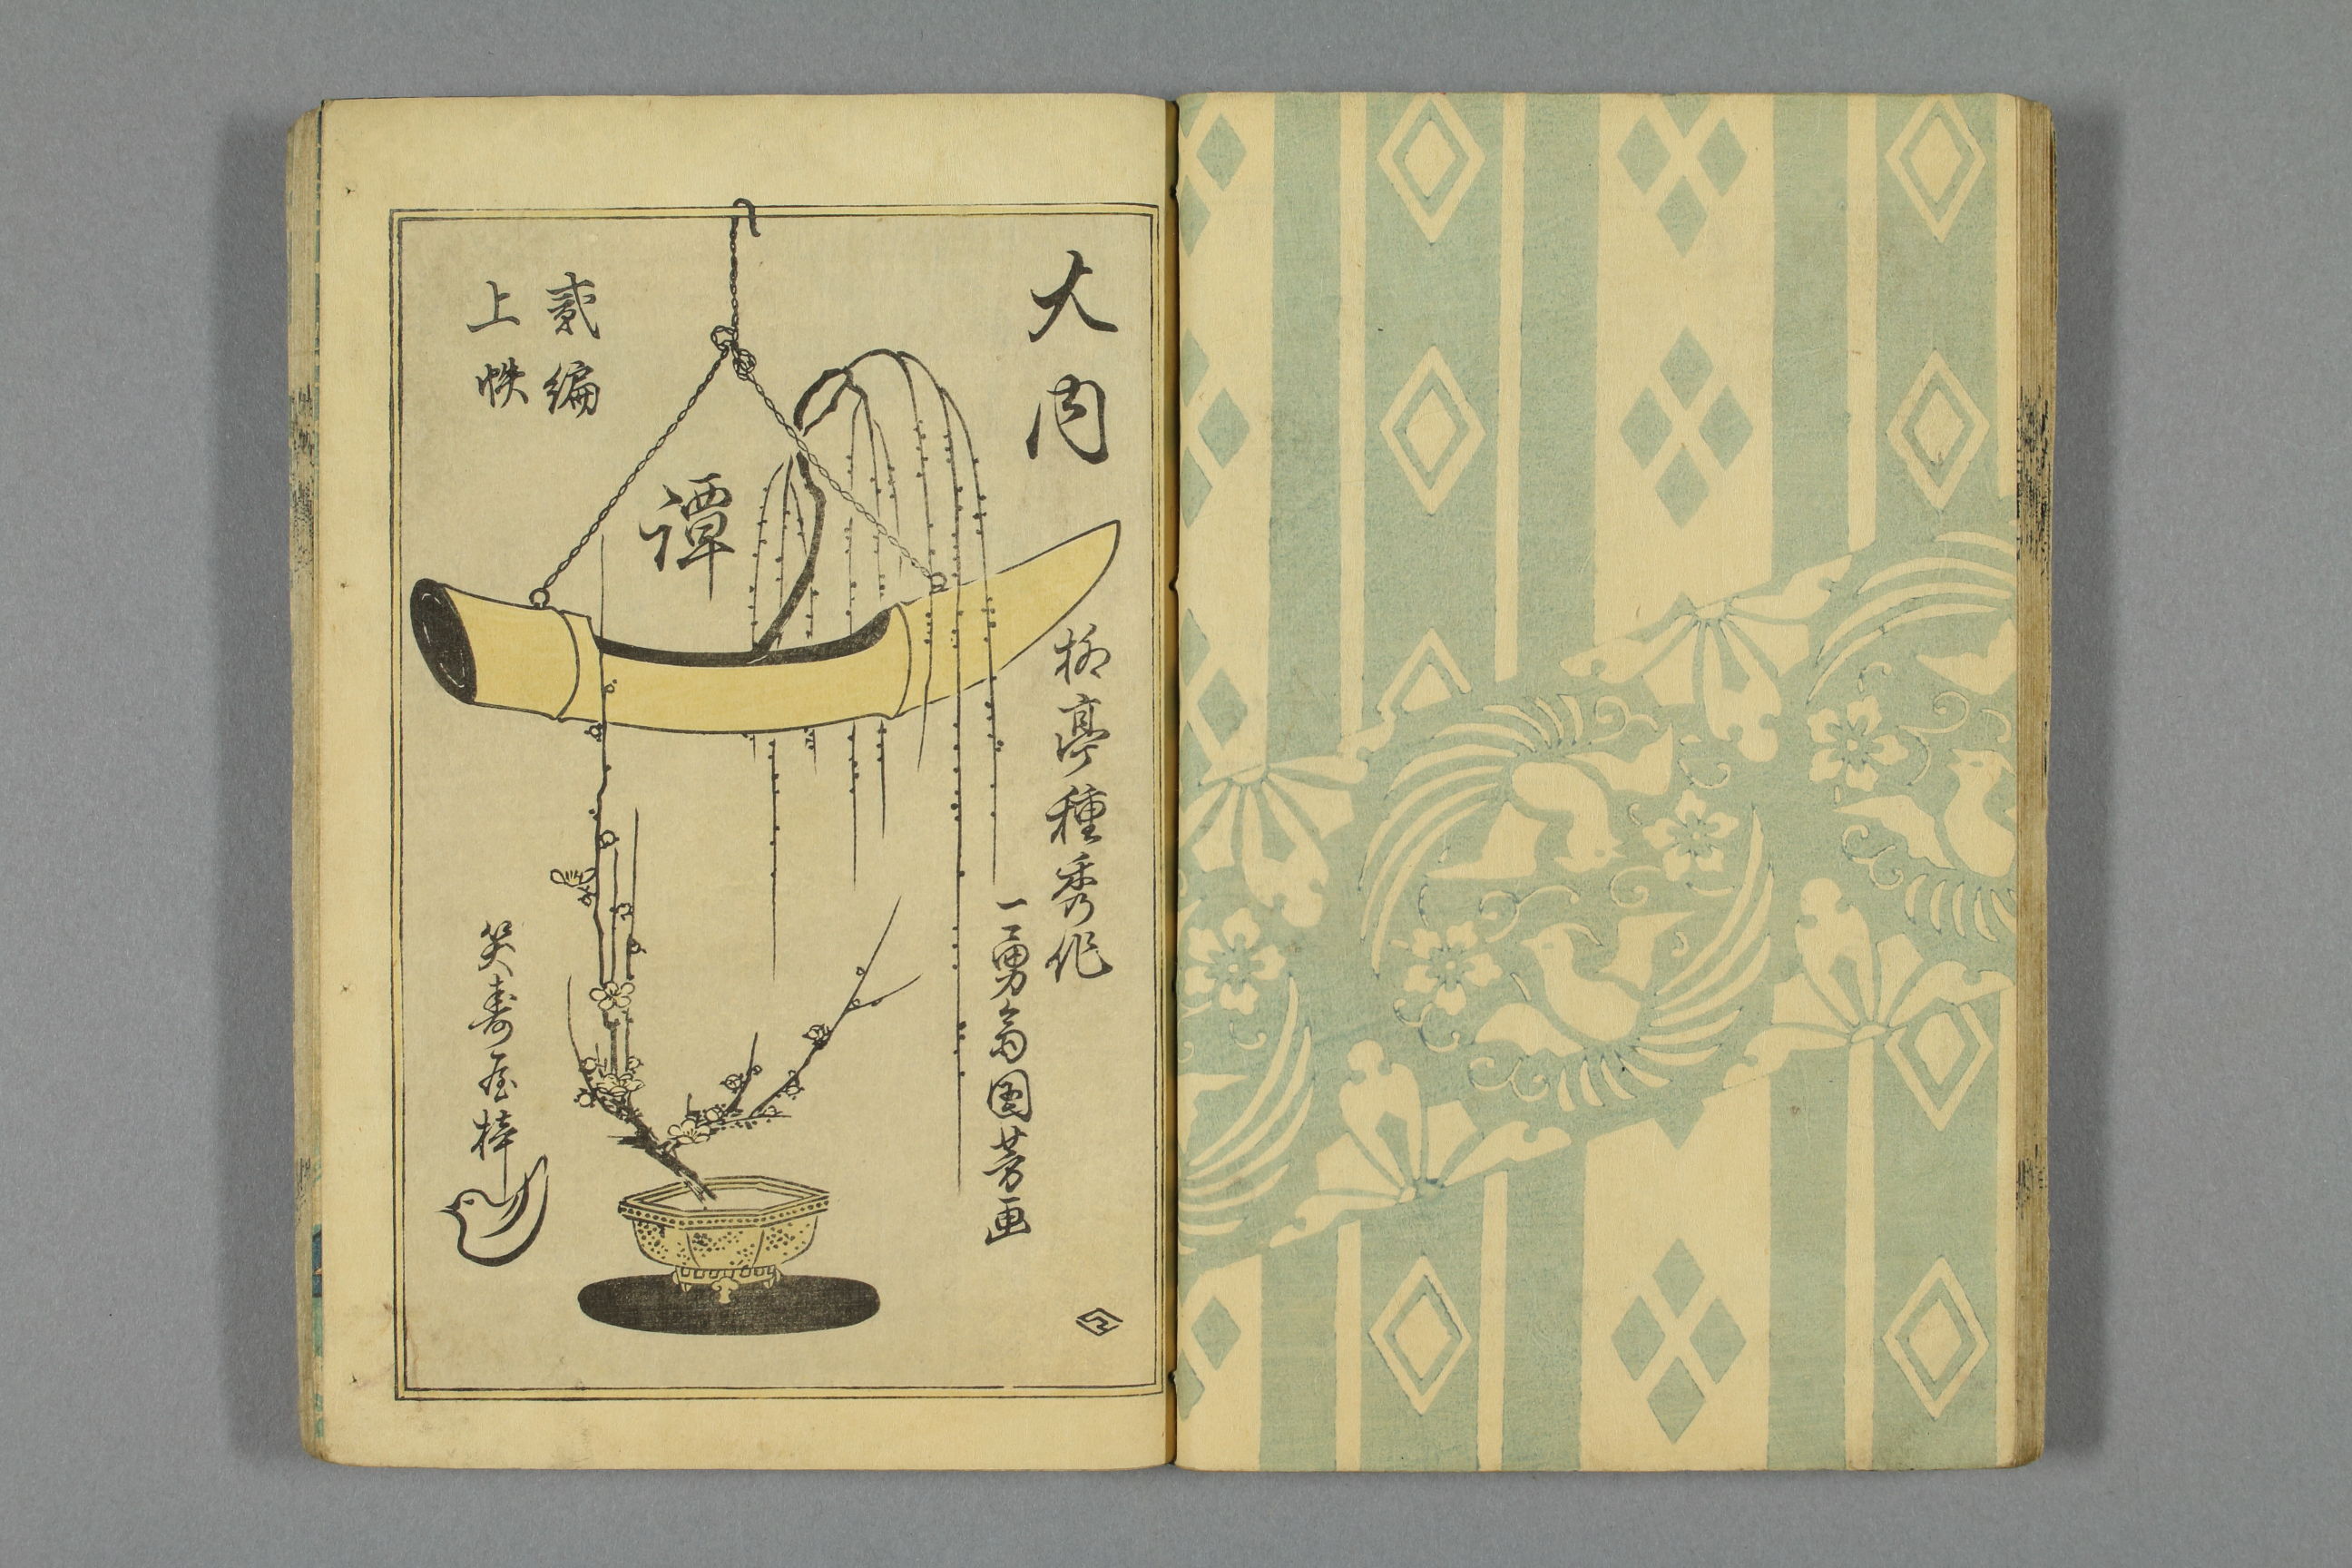 大内
譚
柳亭種秀作
一勇斎国芳画
貳編
上帙
笑寿屋梓